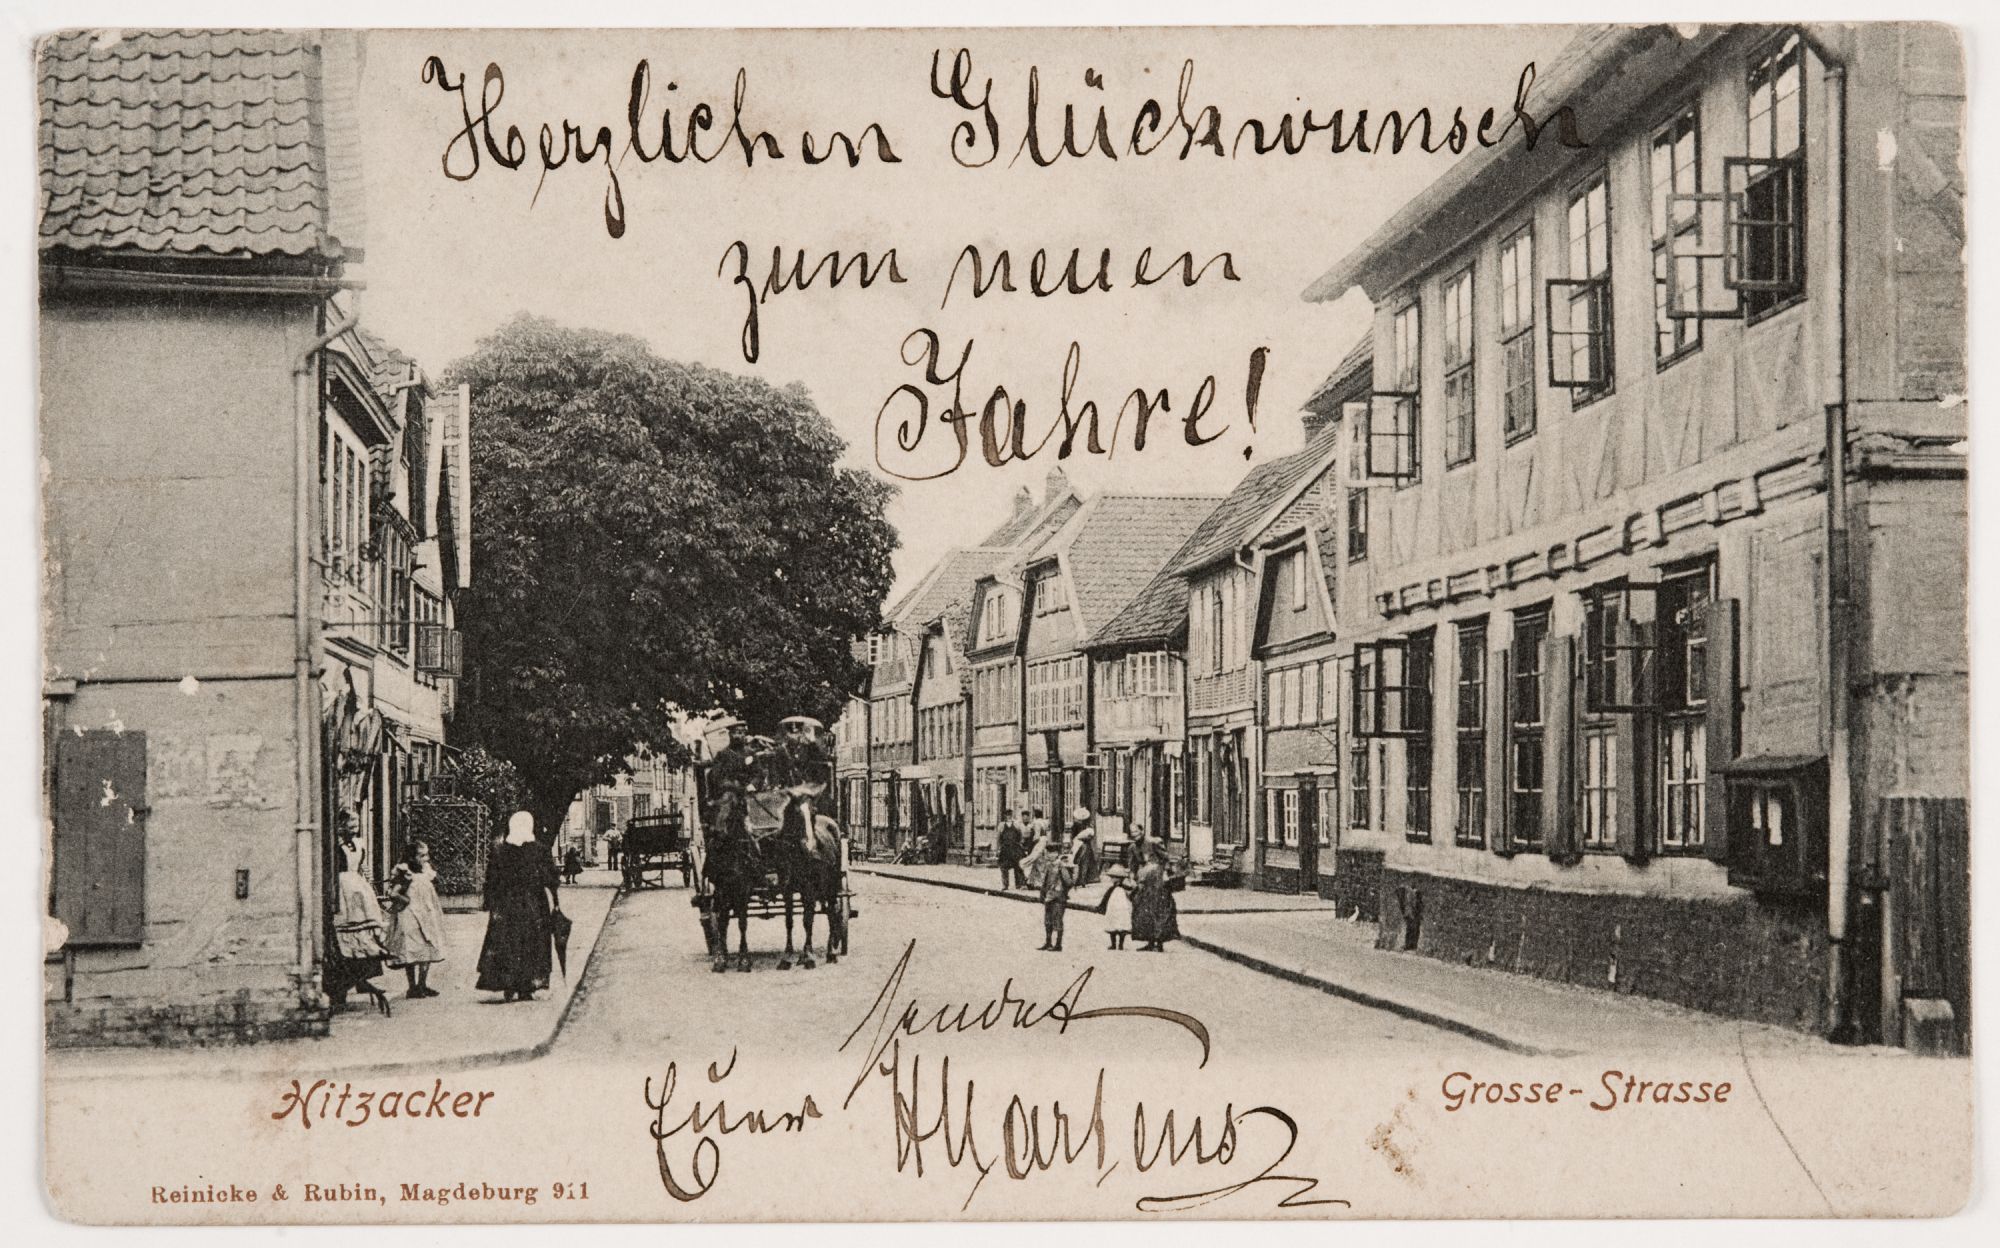 Herzlichen Glückwunsch
zum neuen
Jahre!
sendet
Euer Martens
Hitzacker
Grosse-Strasse
Reinicke & Rubin, Magdeburg 911